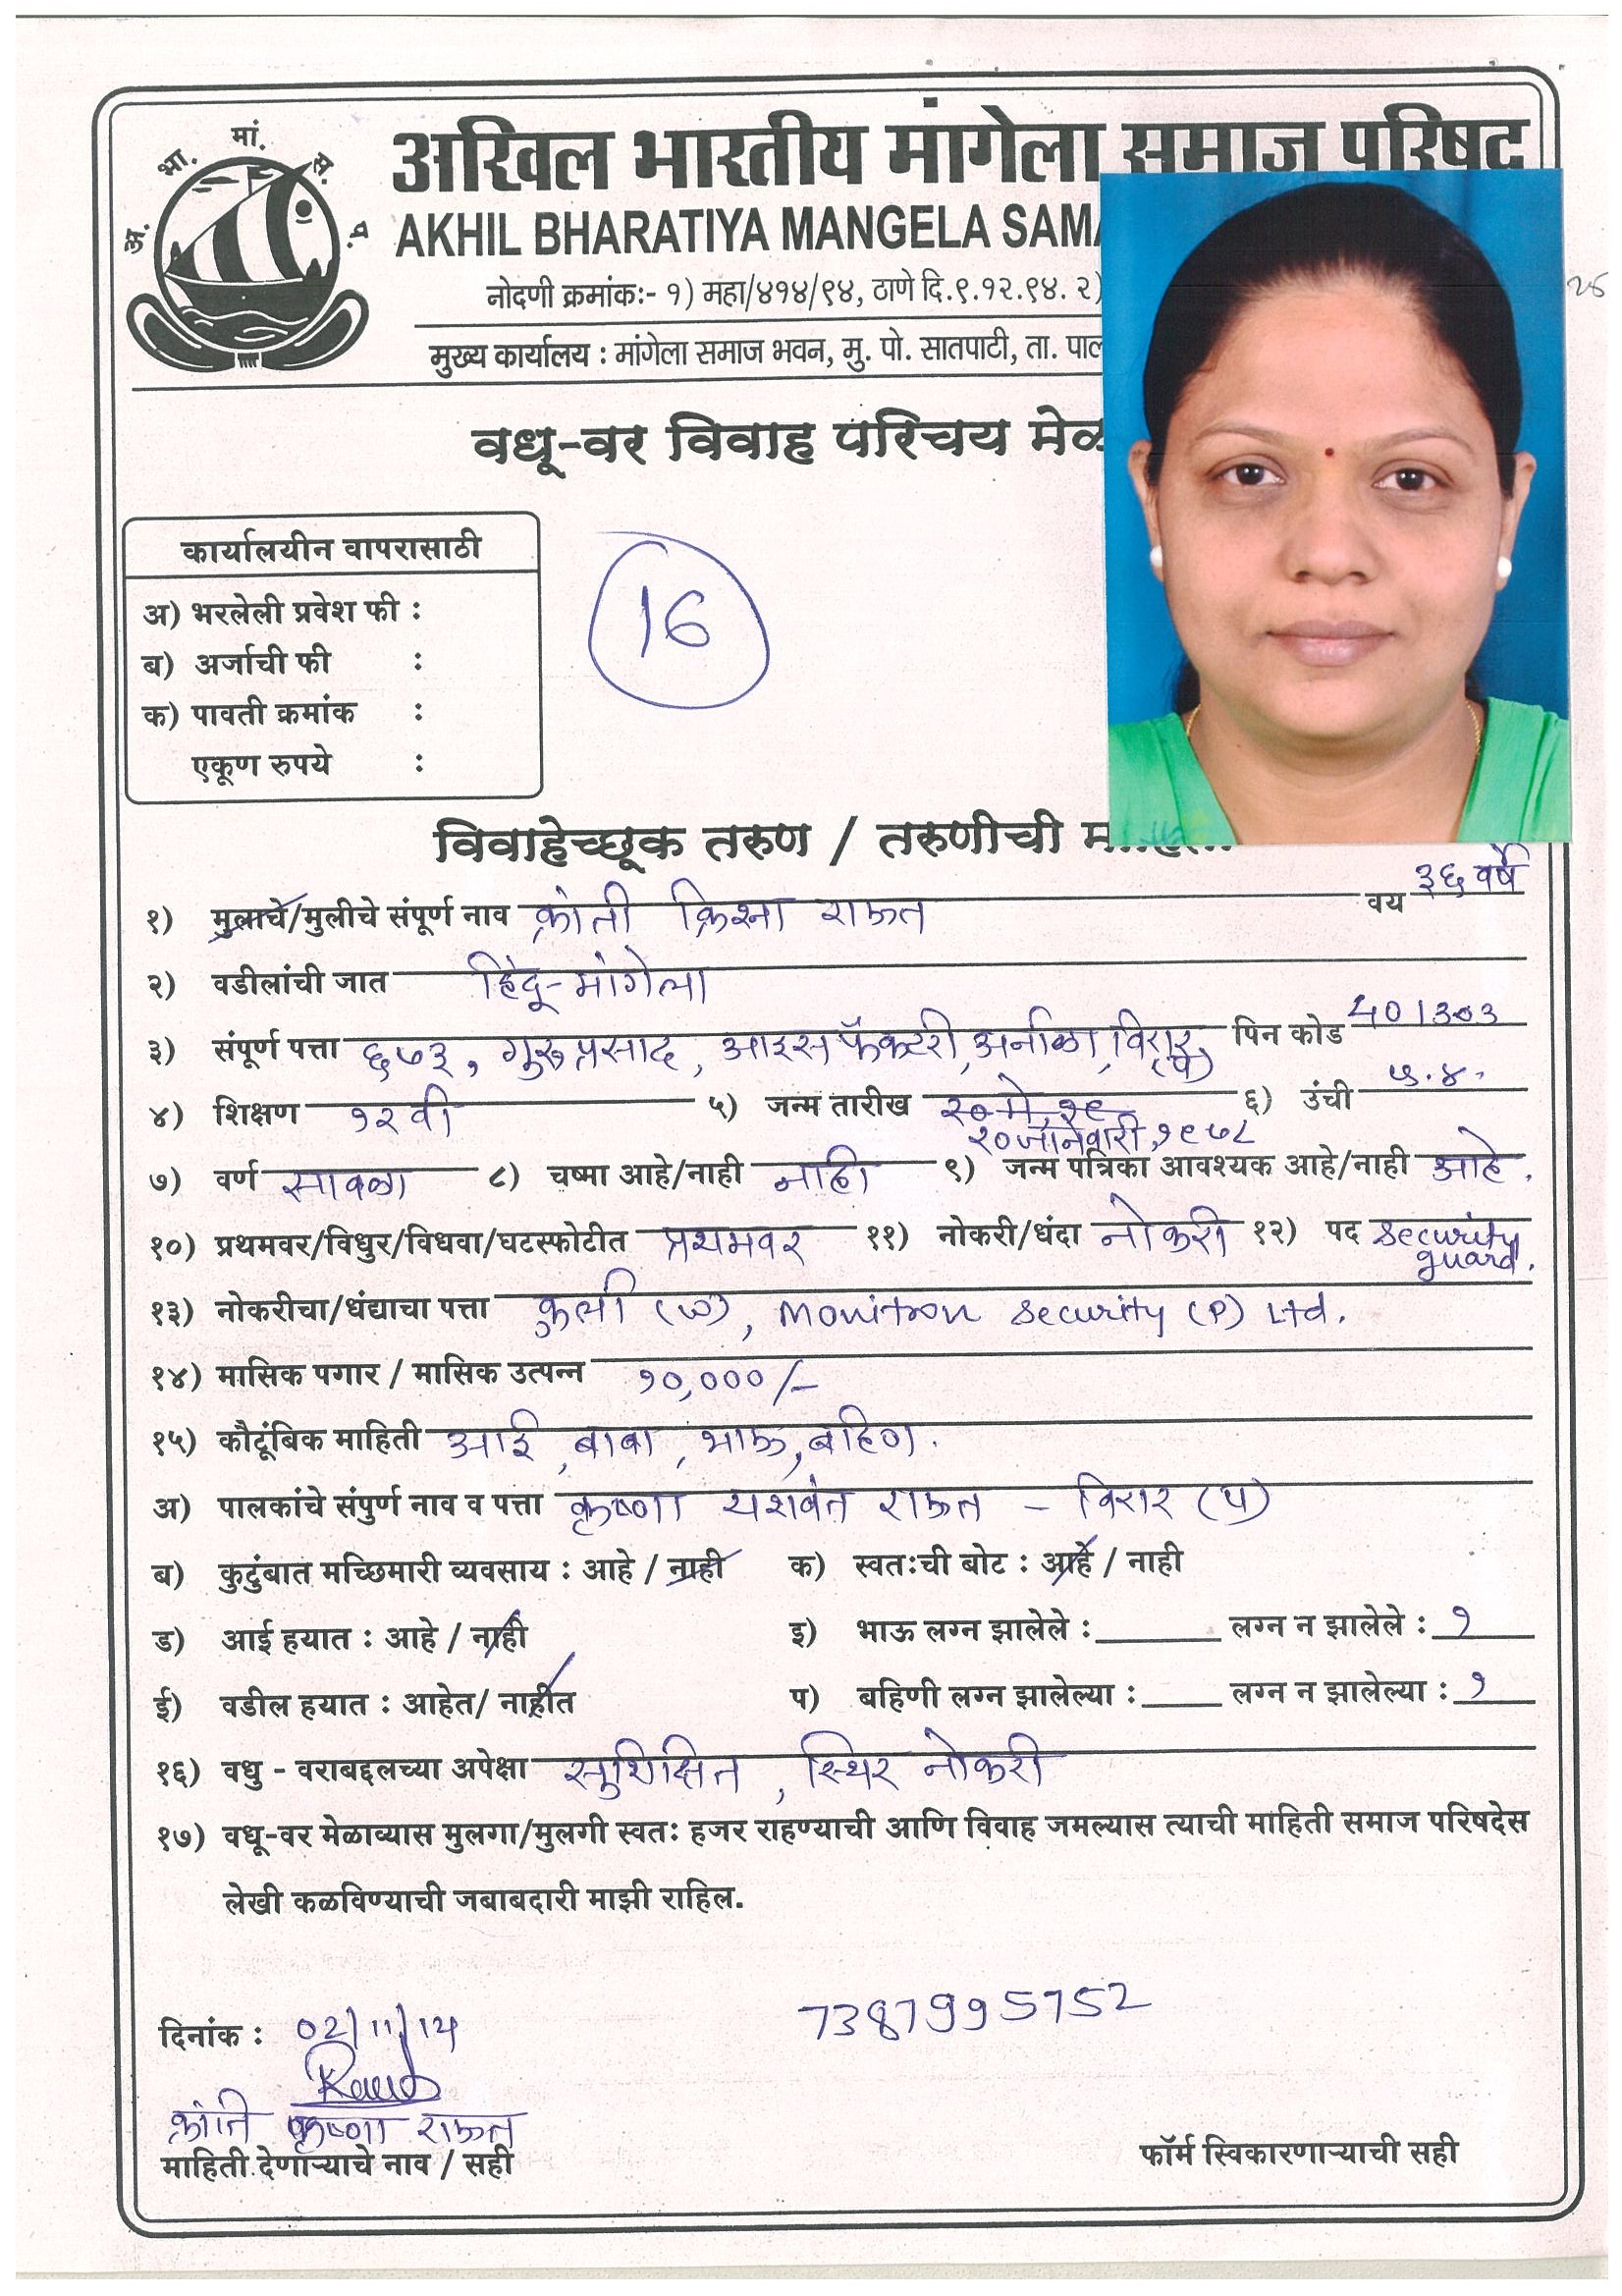 अ. भा. मां. स. प.
अखिल भारतीय मांगेला समाज परिषद
AKHIL BHARATIYA MANGELA SAMA
नोदणी क्रमांकः- १) महा/४१४/९४, ठाणे दि.९.१२.९४. २)
मुख्य कार्यालय : मांगेला समाज भवन, मु. पो. सातपाटी, ता. पाल
वधू-वर विवाह परिचय मेळ
कार्यालयीन वापरासाठी
अ) भरलेली प्रवेश फी :
ब) अर्जाची फी :
क) पावती क्रमांक :
एकूण रुपये :
16
विवाहेच्छूक तरुण / तरुणीची माहिती
१) मुलाचे/मुलीचे संपूर्ण नाव क्रांती क्रिश्ना राऊत वय ३६ वर्षे
२) वडीलांची जात हिंदू-मांगेला
३) संपूर्ण पत्ता ६७३, गुरुप्रसाद, आइस फॅक्टरी, अर्नाळा, विरार (प) पिन कोड 401303
४) शिक्षण १२ वी ५) जन्म तारीख २० जानेवारी, १९७८ ६) उंची ५.४.
७) वर्ण सावळा ८) चष्मा आहे/नाही नाही ९) जन्म पत्रिका आवश्यक आहे/नाही आहे.
१०) प्रथमवर/विधुर/विधवा/घटस्फोटीत प्रथमवर ११) नोकरी/धंदा नोकरी १२) पद security guard.
१३) नोकरीचा/धंद्याचा पत्ता कुर्ला (w), Monitron Security (P) Ltd.
१४) मासिक पगार / मासिक उत्पन्न १०,०००/-
१५) कौटूंबिक माहिती आई, बाबा, भाऊ, बहिण.
अ) पालकांचे संपुर्ण नाव व पत्ता कृष्णा यशवंत राऊत - विरार (प)
ब) कुटुंबात मच्छिमारी व्यवसाय : आहे / नाही क) स्वतःची बोट : आहे / नाही
ड) आई हयात : आहे / नाही इ) भाऊ लग्न झालेले : लग्न न झालेले : १
ई) वडील हयात : आहेत/ नाहीत प) बहिणी लग्न झालेल्या : लग्न न झालेल्या : १
१६) वधु - वराबद्दलच्या अपेक्षा सुशिक्षित, स्थिर नोकरी
१७) वधू-वर मेळाव्यास मुलगा/मुलगी स्वतः हजर राहण्याची आणि विवाह जमल्यास त्याची माहिती समाज परिषदेस
लेखी कळविण्याची जबाबदारी माझी राहिल.
7387995752
दिनांक : 02/11/14
क्रांति कृष्णा राऊत
माहिती देणाऱ्याचे नाव / सही फॉर्म स्विकारणाऱ्याची सही